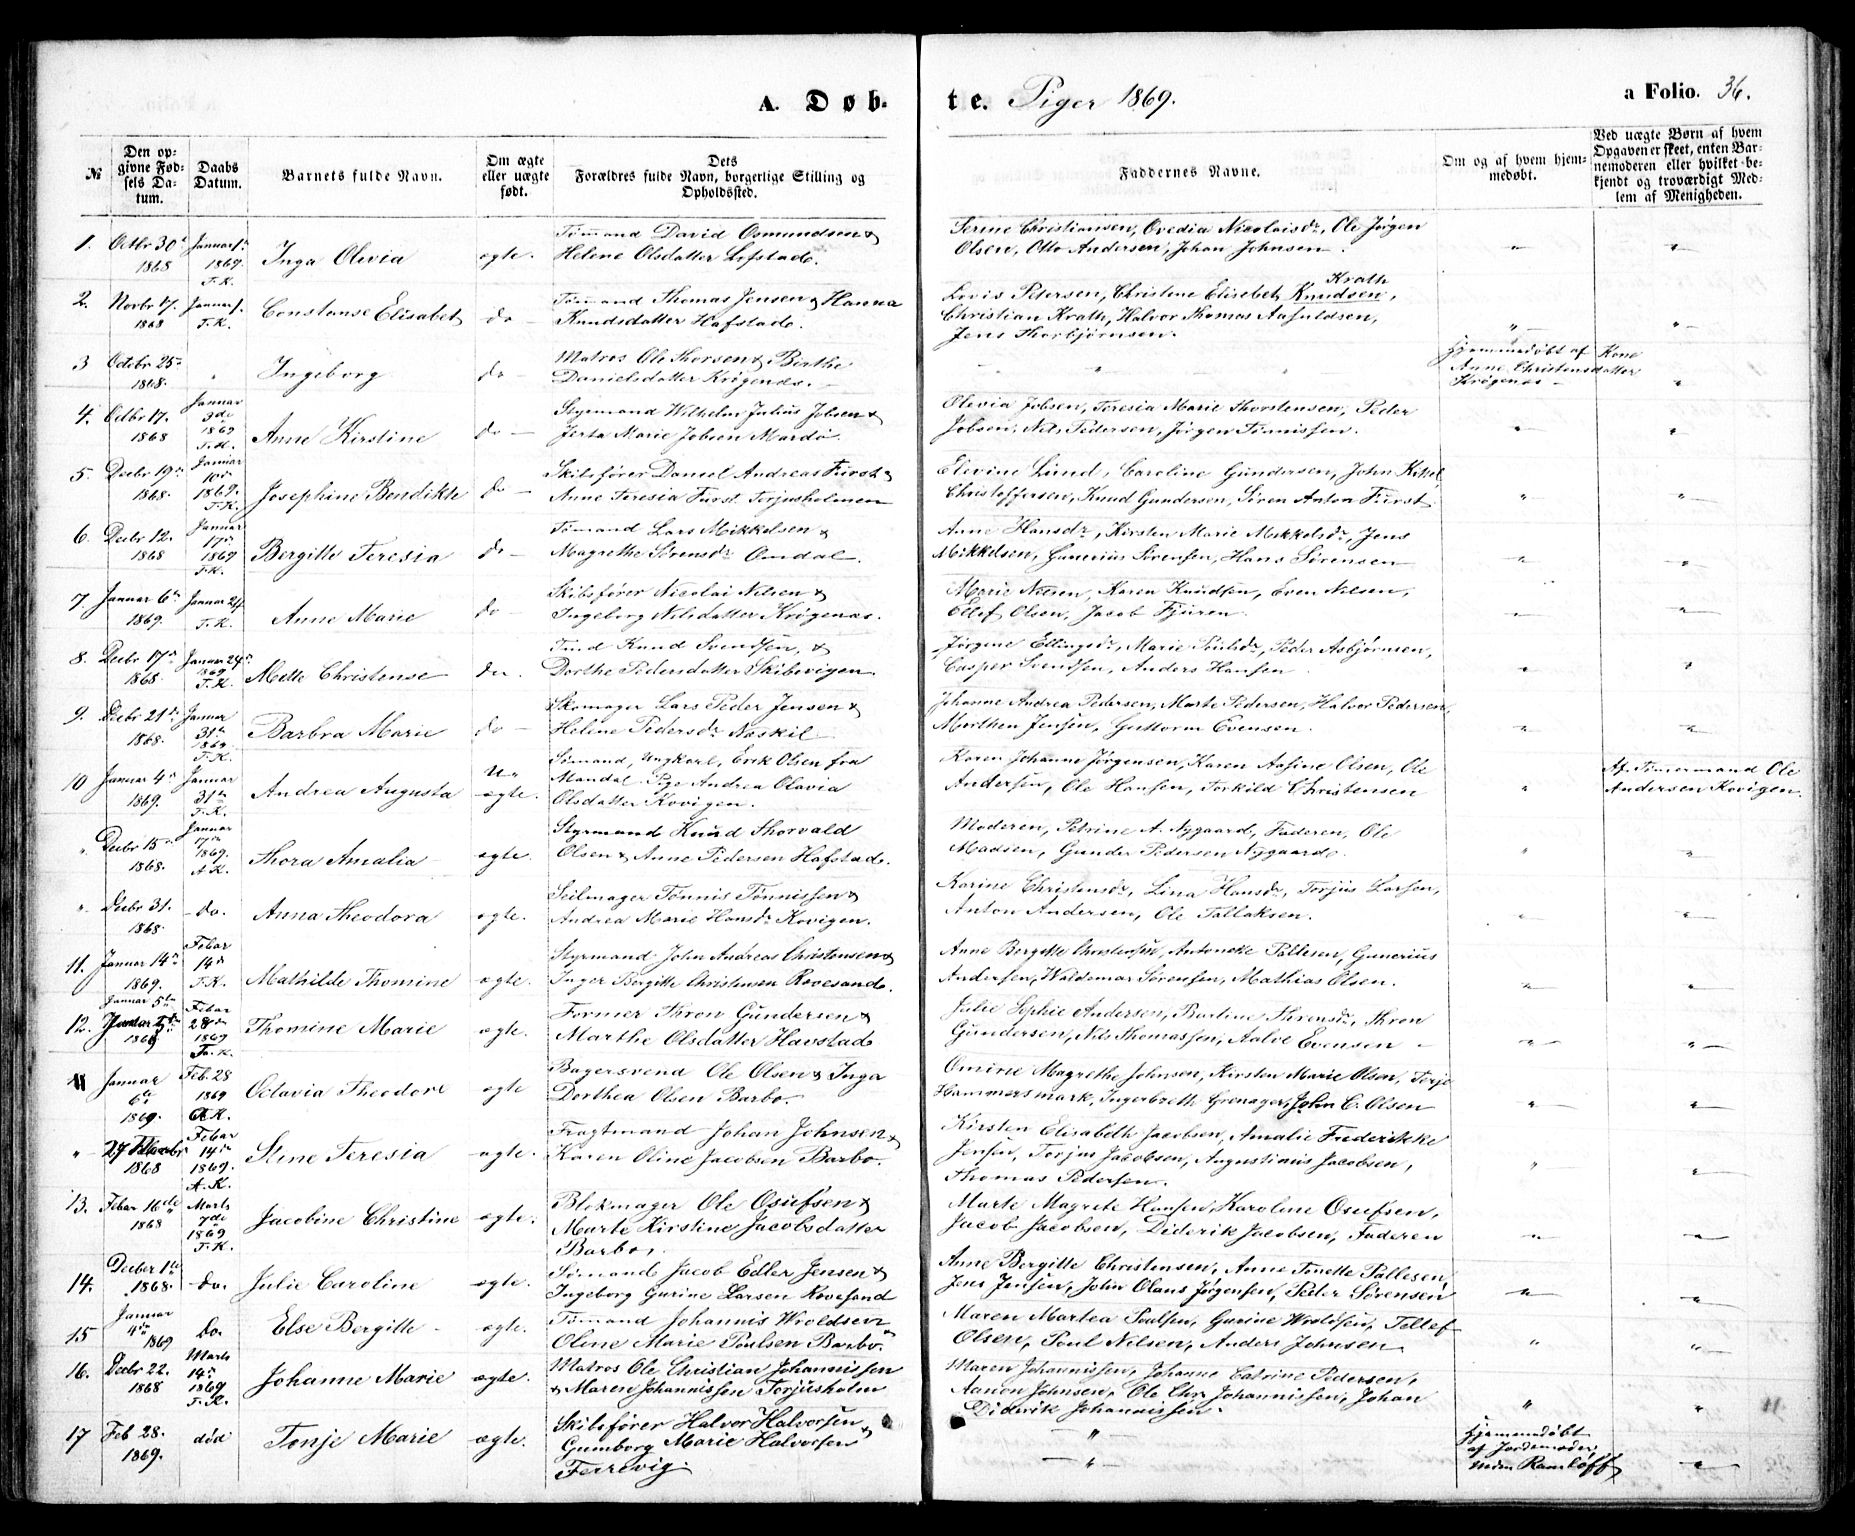 A. Døb-
te. Piger 1869.
a Folio. 36.
№
Den op-
givne Fød-
sels Da-
tum.
Daabs
Datum.
Barnets fulde Navn.
Om ægte
eller uægte
født.
Dets
Forældres fulde Navn, borgerlige Stilling og
Opholdssted.
Faddernes Navne.
Om og af hvem hjem-
medøbt.
Ved uægte Børn af hvem
Opgaven er skeet, enten Bar-
nemoderen eller hvilket be-
kjendt og troværdigt Med-
lem af Menigheden.
1. Octbr 30te 1868
Januar 1te 1869. T.K.
Inga Olevia
ægte.
Tømmand David Osmundsen &
Helene Olsdatter Løfstadø.
Serine Christiansen, Ovedia Nicolaisdr, Ole Jørgen
Olsen, Otto Andersen, Johan Johnsen.
2. Novbr 17. 1868
Januar 1. T.K.
Constanse Elisabet
do
Tømmand Thomas Jensen & Hanna
Knudsdatter Hafstadø.
Krath
Lovis Petersen, Christine Elisebet Knudsen,
Christian Krath, Halvor Thomas Aasuldsen,
Jens Thorbjørnsen.
3 Octobr 25de 1868.
Ingeborg
do
Matros Ole Thorsen & Birthe
Danielsdatter Krøgenæs.
Hjemmedøbt af Kone
Anne Christensdatter
Krøgenæs
4. Octbr 17. 1868
Januar 3de 1869 T.K.
Anne Kirstine
do
Styrmand Wilhelm Julius Jobsen &
Jerta Marie Jobsen Mardø.
Olevia Jobsen, Teresia Marie Thorstensen, Peder
Jobsen, Nils Pedersen, Jørgen Tønnissen.
5. Decbr 19de 1868.
Januar 10de 1869. T.K.
Josephine Bendikte
do
Skibsfører Daniel Andreas Fürst &
Anne Teresia Fürst Torjusholmen
Elevine Lund, Caroline Gundersen, John Kittel
Christoffersen, Knud Gundersen, Sören Anton Fürst
6. Decbr 12. 1868
Januar 17de 1869 T.K.
Bergitte Teresia
do
Tømand Lars Mikkelsen &
Magrethe Sørensdr Omdal.
Anne Hansdr, Kirsten Marie Mikkelsdr, Jens
Mikkelsen, Gunerius Sørensen, Hans Sørensen
7. Januar 6te 1869.
Januar 24. T.K.
Anne Marie
do
Skibsfører Nicolai Nilsen &
Ingeborg Nilsdatter Krøgenæs.
Marie Nilsen, Karen Knudsen, Even Nilsen,
Ellef Olsen, Jacob Fjüren.
8. Decbr 17de 1868.
Januar 24de 1869 T.K.
Mette Christense
do.
Tmd Knud Svendsen, &
Dorthe Pedersdatter Skibevigen.
Jørgine Ellingsdr, Marie Poulsdr, Peder Asbjørnsen,
Casper Svendsen, Anders Hansen
9. Decbr 21de 1868.
Januar 31te 1869 T.K.
Barbra Marie
do
Skomager Lars Peder Jensen &
Helene Pedersdr Næskil.
Johanne Andrea Pedersen, Marte Pedersen, Halvor Pedersen,
Morthen Jensen, Guttorm Evensen.
10 Januar 4de 1869.
Januar 31te T.K.
Andrea Augusta
U-
ægte.
Sømand, Ungkarl, Erik Olsen fra
Mandal. Pige Andrea Olavia
Olsdatter Kovigen.
Karen Johanne Jørgensen, Karen Aasine Olsen, Ole
Andersen, Ole Hansen, Torkild Christensen
Af Tømermand Ole
Andersen Kovigen.
" Decbr 15de 1868.
Januar 17de 1869. A.K.
Thora Amalia
ægte.
Styrmand Knud Thorvald
Olsen & Anne Pedersen Hafstadø.
Moderen, Petrine A. Nygaard, Faderen, Ole
Madsen, Gunder Pedersen Nygaard.
" Decbr 31. 1868.
do.
Anna Theodora
ægte.
Seilmager Tønnis Tønnissen &
Andrea Marie Hansdr Kovigen.
Karine Christensdr, Lina Hansdr, Torjus Larsen,
Anton Andersen, Ole Tallaksen.
11. Januar 14de 1869.
Febar 14de T.K.
Mathilde Thomine
ægte.
Styrmand John Andreas Christensen &
Inger Bergitte Christensen Rævesand.
Anne Bergitte Christensen, Antonette Pallesen, Gunerius
Andersen, Waldemar Sørensen, Mathias Olsen.
12. Januar 5te 1869
Febar 28de 1869 T.K.
Thomine Marie
ægte.
Former Thron Gundersen &
Marthe Olsdatter Havstad
Julie Sophie Andersen, Berline Thronsdr, Thron
Gundersen, Nils Thomassen, Aalve Evensen
Januar 6te 1869.
Feb. 28 1869 A.K.
Octavia Theodore
ægte
Bagersvend Ole Olsen & Inga
Dorthea Olsen Barbo.
Omine Magrethe Johnsen, Kirsten Marie Olsen, Torje
Hammersmark, Ingerbreth Grenager, John C. Olsen
" 27 Novbr 1868
Febar 14de 1869. A.K.
Stine Teresia
ægte.
Fragtmand Johan Johnsen &
Karen Oline Jacobsen Barbo.
Kirsten Elisabeth Jacobsen, Amalie Frederikke
Jensen, Torjus Jacobsen, Augustinus Jacobsen,
Thomas Pedersen.
13. Febar 16de 1868
Marts 7de 1869 T.K.
Jacobine Christine
ægte.
Blokmager Ole Osufsen &
Marte Kirstine Jacobsdatter
Barbo.
Marte Magrete Hansen, Karoline Osufsen,
Jacob Jacobsen, Diderik Jacobsen, Faderen
14. Decber 1te 1868.
do.
Julie Caroline
ægte.
Sømand Jacob Edler Jensen &
Ingeborg Gurine Larsen Rovesand
Anne Bergitte Christensen, Anne Tonette Pallesen,
Jens Jensen, John Olaus Jørgensen, Peder Sørensen
15 Januar 4de 1869
Do.
Else Bergitte
ægte.
Tømmand Johannis Wroldsen
Oline Marie Poulsen Barbo.
Maren Martea Poulsen, Gurine Wroldsen, Tellef
Olsen, Poul Nilsen, Anders Johnsen
16. Decbr 22. 1868
Marts 14de 1869 T.K.
Johanne Marie
ægte.
Matros Ole Christian Johannissen
& Maren Johannissen Torjusholm
Maren Johannissen, Johanne Catrine Pedersen,
Aanon Johnsen, Ole Chr. Johannissen, Johan
Diderik Johannissen.
17 Feb 28. 1869.
død
Tonje Marie
ægte.
Skibsfører Halvor Halvorsen &
Gumborg Marie Halvorsen
Ferrevig.
Hjemmedøbt
af Jordemoder